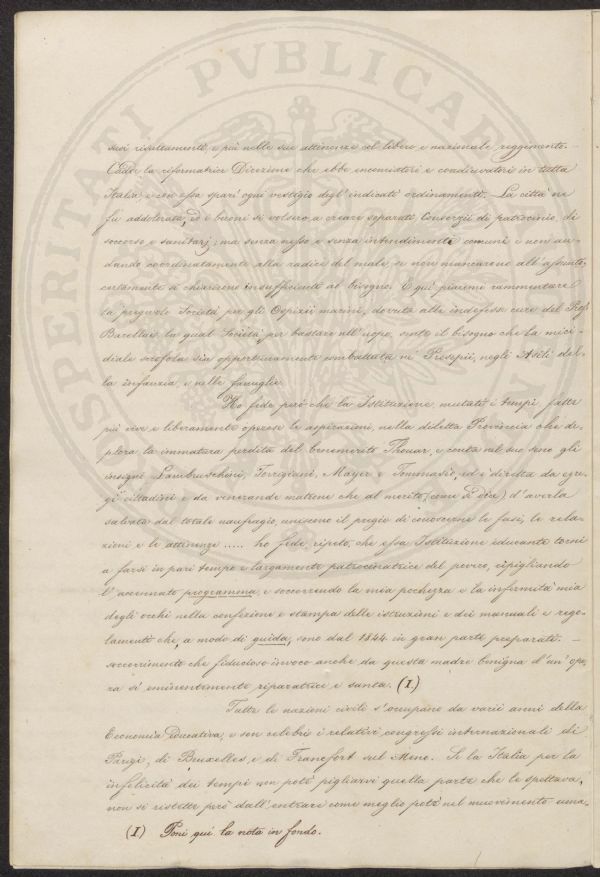 suoi risultamenti, e più nelle sue attinenze col libero e nazionale reggimento. —
Cadde la riformatrice Direzione che ebbe encomiatori e coadiuvatori in tutta
Italia e con essa sparì ogni vestigio degl'indicati ordinamenti. — La città ne
fu addolorata, ed i buoni si volsero a creare separati Consorzii di patrocinio, di
soccorso e sanitarj; ma senza nesso e senza intendimenti comuni e non an-
dando coordinatamente alla radice del male, se non mancarono all'assunto,
certamente si chiarirono insufficienti al bisogno. E qui piacemi rammentare
la pregevole Società per gli Ospizii marini, dovuta alle indefesse cure del Prof.
Barellai, la qual Società per bastare all'uopo, sente il bisogno che la mici-
diale scrofola sia opportunamente combattuta ne' Presepii, negli Asili del-
la infanzia, e nelle famiglie.
Ho fede però che la Istituzione, mutati i tempi, fatte
più vive e liberamente operose le aspirazioni, nella diletta Provincia che de-
plora la immatura perdita del benemerito Thouar, e conta nel suo seno gli
insigni Lambruschini, Torrigiani, Mayer e Tommasèo, ed è diretta da egre-
gi cittadini e da venerande matrone che al merito (come Ei dice) d'averla
salvata dal totale naufragio, uniscono il pregio di conoscerne le fasi, le rela-
zioni e le attinenze ..... ho fede, ripeto, che essa Istituzione educante torni
a farsi in pari tempo e largamente patrocinatrice del povero, ripigliando
l'accennato programma, e soccorrendo la mia pochezza e la infermità mia
degli occhi nella confezione e stampa delle istruzioni e dei manuali e rego-
lamenti che, a modo di guida, sono dal 1844 in gran parte preparati. —
soccorrimento che fiducioso invoco anche da questa madre benigna d'un'ope-
ra sì eminentemente riparatrice e santa. (I)
Tutte le nazioni civili s'occupano da varii anni della
Economia Educativa, e son celebri i relativi congressi internazionali di
Parigi, di Bruxelles, e di Francfort sul Meno. Se la Italia per la
infelicità dei tempi non potè pigliarvi quella parte che le spettava,
non si ristette però dall'entrare come meglio potè nel muovimento uma-
(I) Poni qui la nota in fondo.
PERITATI PVBLICAE